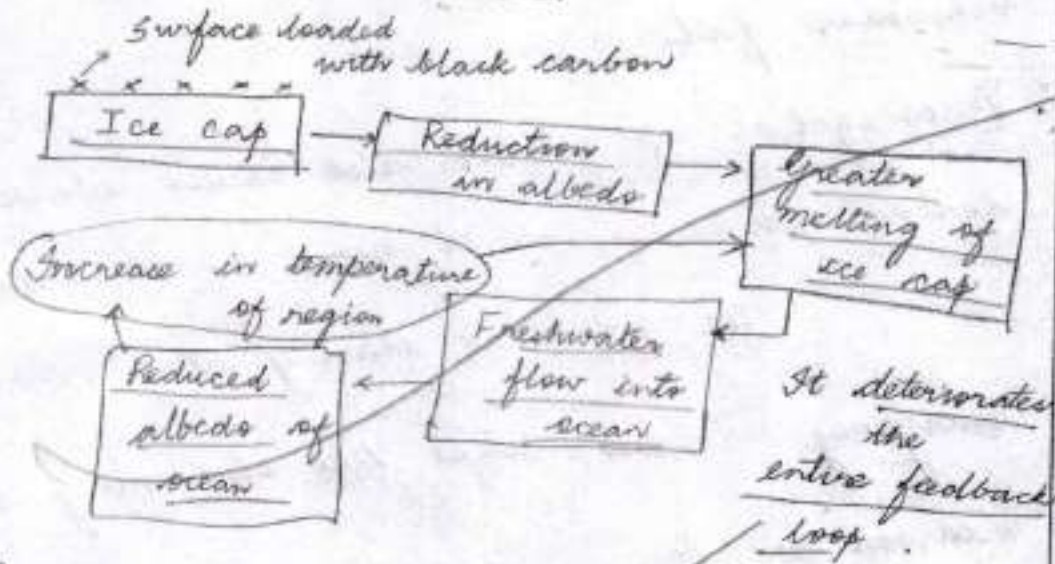 Surface loaded
with black carbon
Ice cap
Reduction
in albedo
Greater
melting of
ice cap
Increase in temperature
of region
Freshwater
flow into
ocean
Reduced
albedo of
ocean
It deteriorates
the
entire feedback
loop.